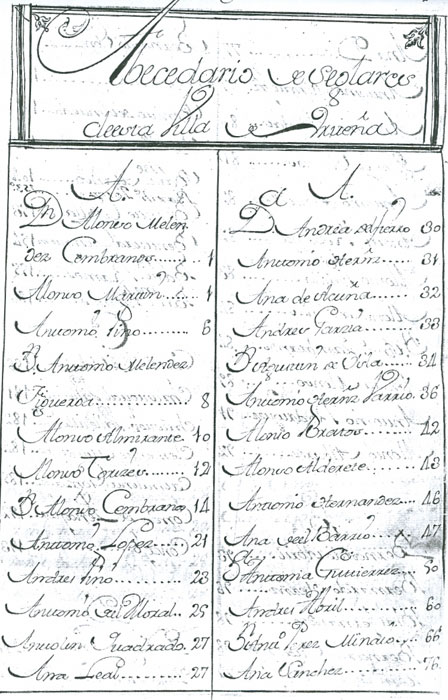 Abecedario de seglares
de esta Villa de Urueña
A.
Dn Alonso Melen
dez Cembranos....... 1
Alonso Martin....... 1
Antonio Pino......... 6
D. Antonio Melendez
Figueroa........... 8
Alonso Almirante. 10
Alonso 12
D. Alonso Cembrano 14
Antonio Lopez...... 21
Andres Pino.......... 23
Antonio del Moral... 25
Antolin Quadrado. 27
Ana Leal........... 27
A.
D. Andrea 30
Antonio Hernz...... 31
Ana de Acuña....... 32
Andres Garzia....... 33
de 34
Antonio Hernz Barrio 36
Alonso Bratos....... 42
Alonso Alderete...... 43
Antonio Hernandez.... 46
Ana del Barrio 47
Antonia Gutierrez... 50
Andres Abril....... 60
Perez 66
Ana Sanchez....... 76